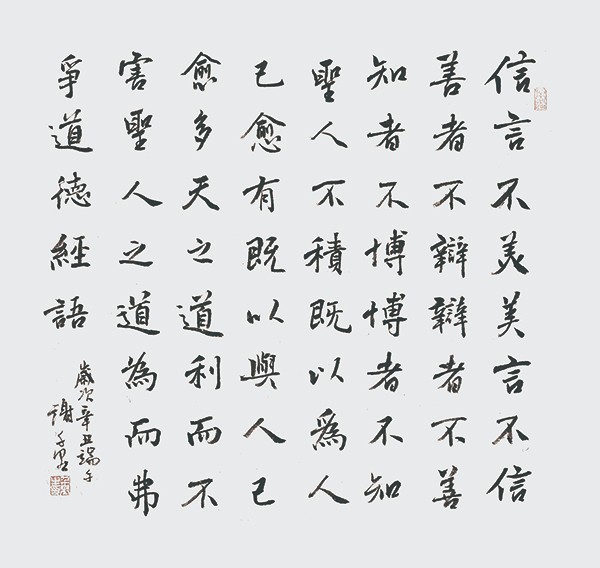 信言不美美言不信
善者不辯辯者不善
知者不博博者不知
聖人不積既以爲人
己愈有既以與人己
愈多天之道利而不
害聖人之道為而弗
爭道德經語
歲次辛丑端午
謝